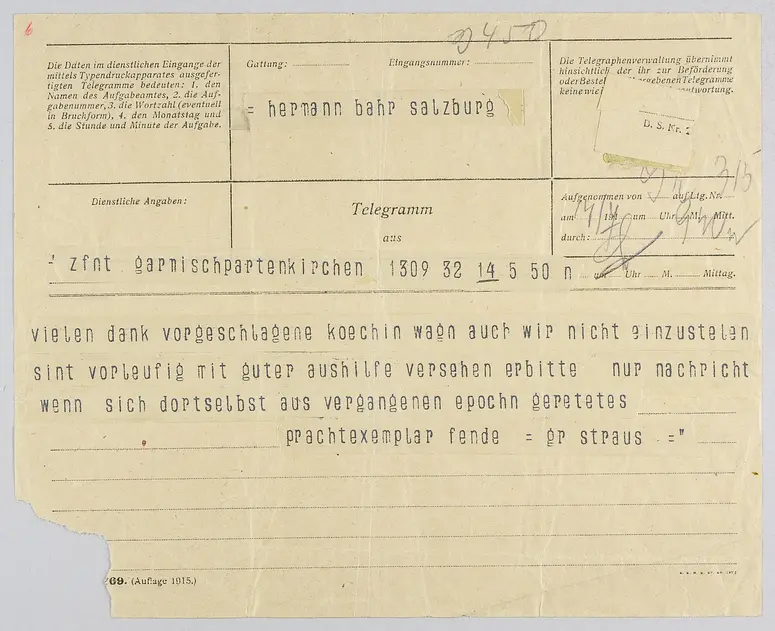 6
450
Die Daten im dienstlichen Eingange der
mittels Typendruckapparates ausgefer-
tigten Telegramme bedeuten: 1. den
Namen des Aufgabeamtes, 2. die Auf-
gabenummer, 3. die Wortzahl (eventuell
in Bruchform), 4. den Monatstag und
5. die Stunde und Minute der Aufgabe.
Gattung: Eingangsnummer:
= hermann bahr salzburg
Die Telegraphenverwaltung übernimmt
hinsichtlich der ihr zur Beförderung
oder Bestel ergebenen Telegramme
keine wie antwortung.
B. S. Nr. 2
Dienstliche Angaben:
Telegramm
aus
315
Aufgenommen von auf Ltg. Nr.
am 191 um Uhr M. Mitt.
durch:
zfnt garmischpartenkirchen 1309 32 14 5 50 n
am Uhr M. Mittag.
vielen dank vorgeschlagene koechin wagn auch wir nicht einzustelen
sint vorleufig mit guter aushilfe versehen erbitte nur nachricht
wenn sich dortselbst aus vergangenen epochn geretetes
prachtexemplar fende = gr straus ="
69. (Auflage 1915.)